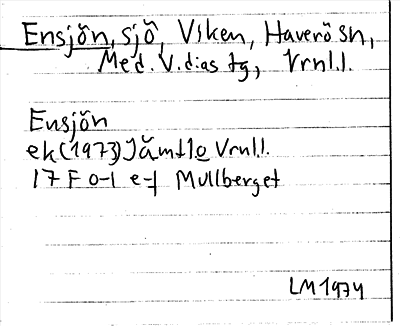 Ensjön, sjö, Viken, Haverö sn,
Med. V.dias tg, Vrnl.l.
Ensjön
ek(1973) Jämtle Vrnll.
17 F 0-1 e-f Mullberget
LM 1974